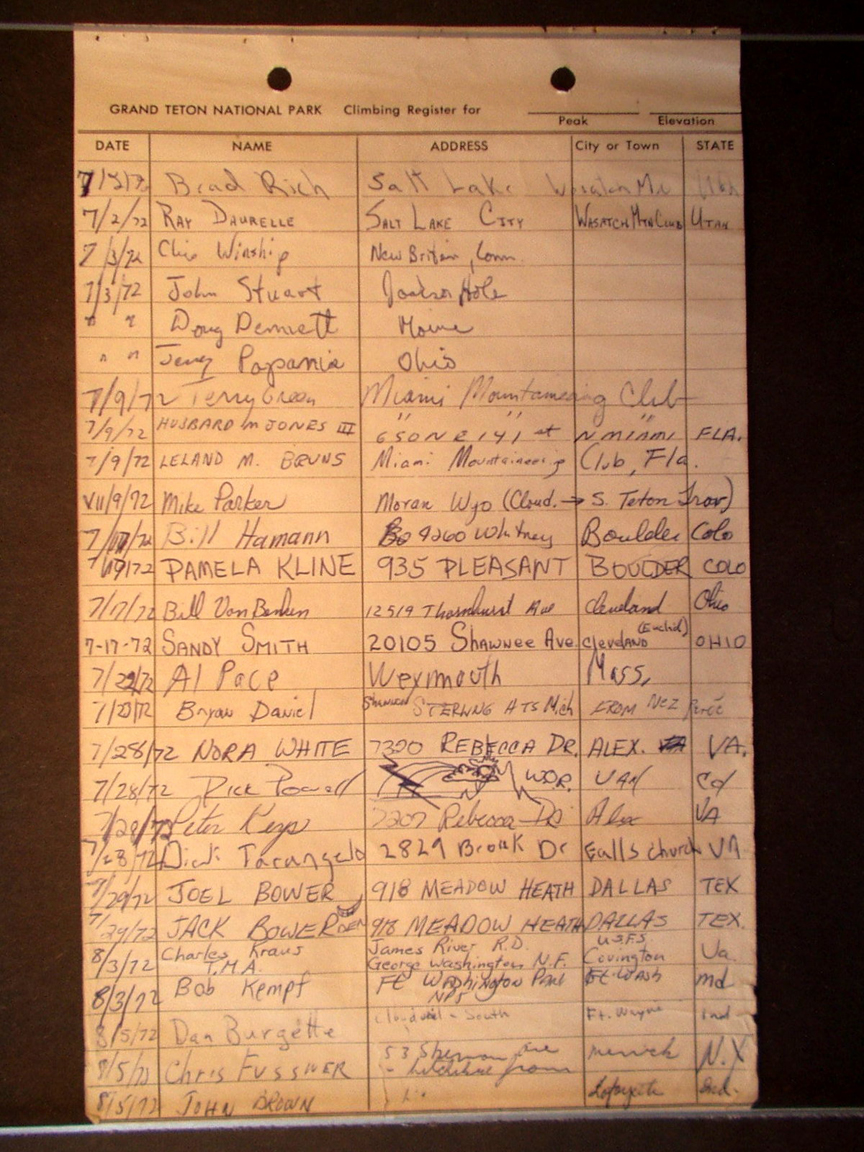 GRAND TETON NATIONAL PARK Climbing Register for
Peak Elevation
DATE NAME ADDRESS City or Town STATE
Brad Rich Salt Lake
7/2/72 RAY DAURELLE SALT LAKE CITY WASATCH MTN CLUB UTAH
7/3/72 Winship New Britain, Conn.
7/3/72 John Stuart Jackson Hole
" " Doug Dennett Maine
" " Jerry Papania Ohio
7/9/72 Terry Green Miami Mountaineering Club
7/9/72 HUBBARD M JONES III 650 N E 141 st N MIAMI FLA.
" " "
7/9/72 LELAND M. BRUNS Miami Mountaineering Club, Fla.
VII/9/72 Mike Parker Moran Wyo (Cloud. → S. Teton Trav)
Bill Hamann 4260 Whitney Boulder Colo
PAMELA KLINE 935 PLEASANT BOULDER COLO
7/17/72 Bill 12519 Thornhurst Ave Cleveland Ohio
7-17-72 SANDY SMITH 20105 Shawnee Ave. Cleveland (Euclid) OHIO
Al Pace Weymouth Mass.
Bryan Daniel STERLING HTS Mich FROM NEZ Percé
7/28/72 NORA WHITE 7320 REBECCA DR. ALEX. VA.
7/28/72 Dick Powell
Peter 7207 Rebecca Dr Alex VA
7/28/72 Dick Tacangelo 2829 Brook Dr Falls Church VA
7/29/72 JOEL BOWER 918 MEADOW HEATH DALLAS TEX
7/29/72 JACK BOWERDEN 918 MEADOW HEATH DALLAS TEX.
8/3/72 Charles Kraus James River R.D. U.S.F.S
T.M.A. George Washington N.F. Covington Va.
8/3/72 Bob Kempf Ft Washington Park Ft. Wash md
NPS
8/5/72 Dan Burgette South Ft. Wayne Ind
8/5/72 Chris FUSSNER 53 Sherman Ave Merrick N.Y
8/5/72 JOHN BROWN Lafayette Ind.